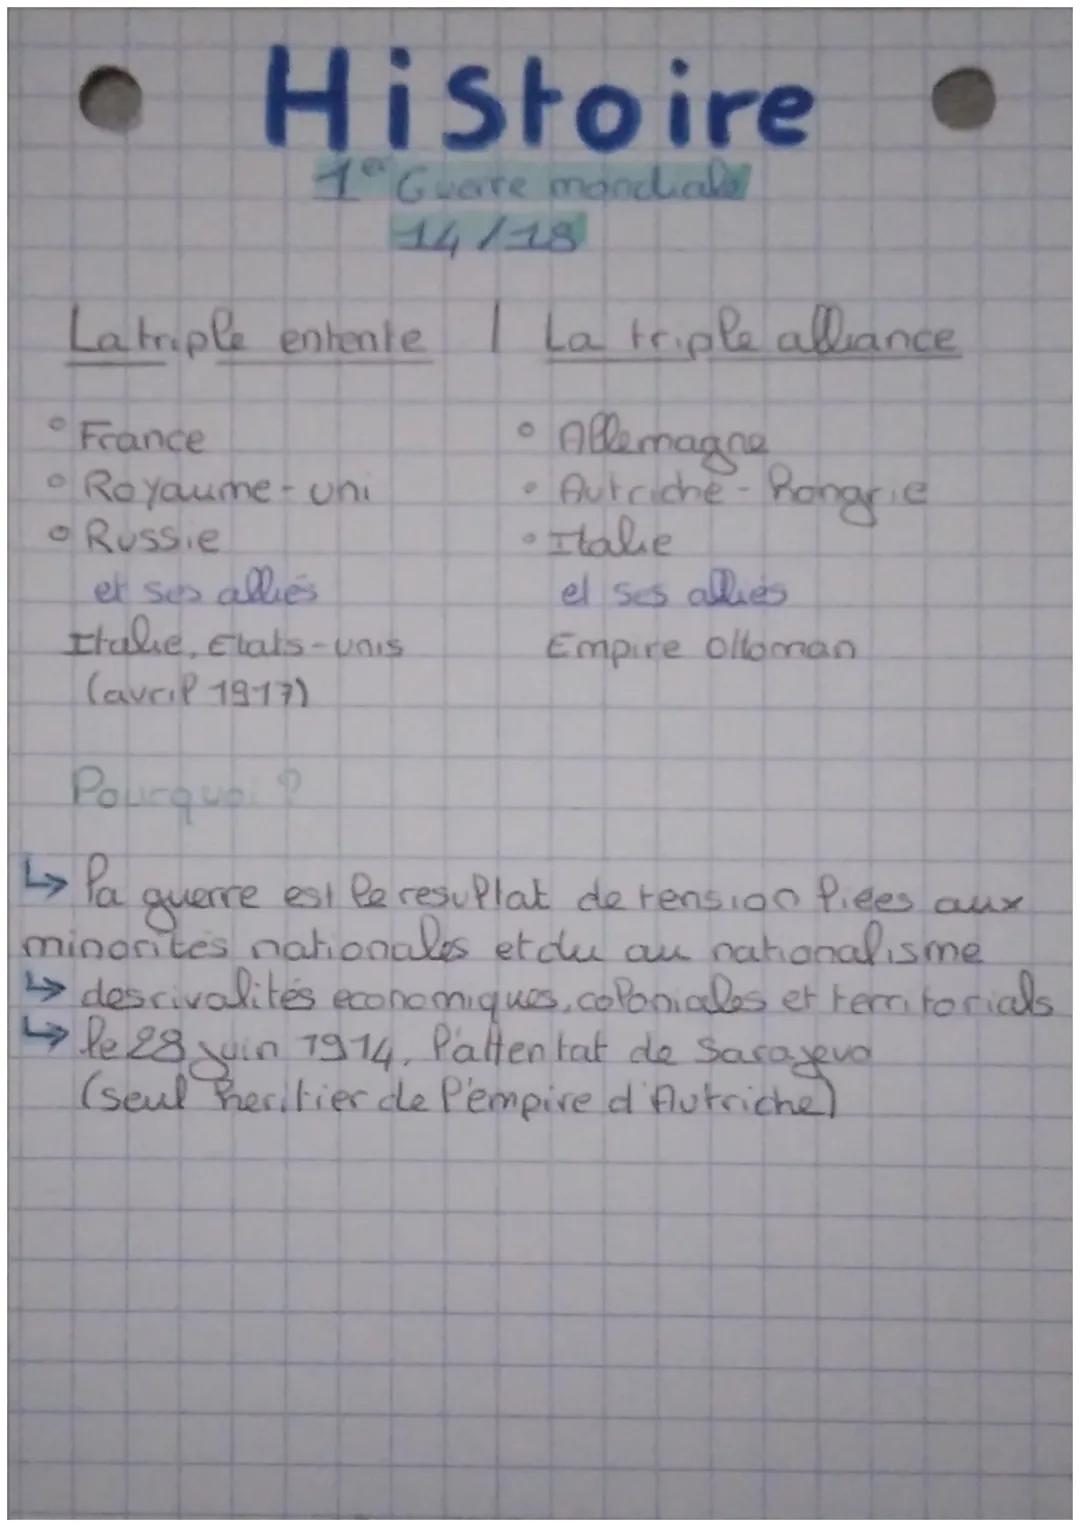 Histoire
1er Guerre mondiale
14/18
La triple entente | La triple alliance
° France
° Royaume-uni
° Russie
et ses alliés
Italie, Etats-unis
(avril 1917)
° Allemagne
• Autriche-hongrie
• Italie
et ses alliés
Empire Ottoman
Pourquoi ?
↳ la guerre est le resultat de tension liées aux
minorités nationales et du au nationalisme
↳ des rivalités economiques, coloniales et territorials
↳ le 28 juin 1914, l'attentat de Sarajevo
(seul heritier de l'empire d'Autriche)